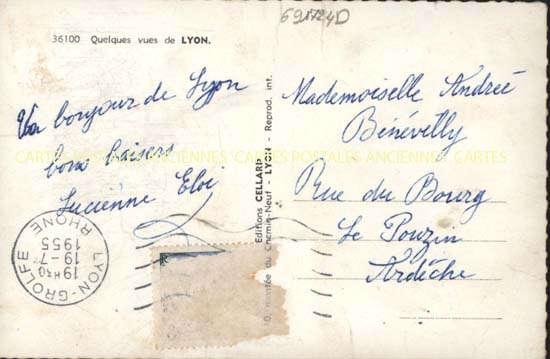 691724D
36100 Quelques vues de LYON.
Un bonjour de Lyon
bons baisers
Lucienne Eloi
Mademoiselle Andrée
Bénévelly
Rue du Bourg
Le Pouzin
Ardèche
Editions CELLARD
Montée du Chemin-Neuf - LYON - Reprod. int.
CARTES POSTALES ANCIENNES CARTES POSTALES ANCIENNES CARTES
LYON-GROLEE
19H30
19-7
1955
RHONE